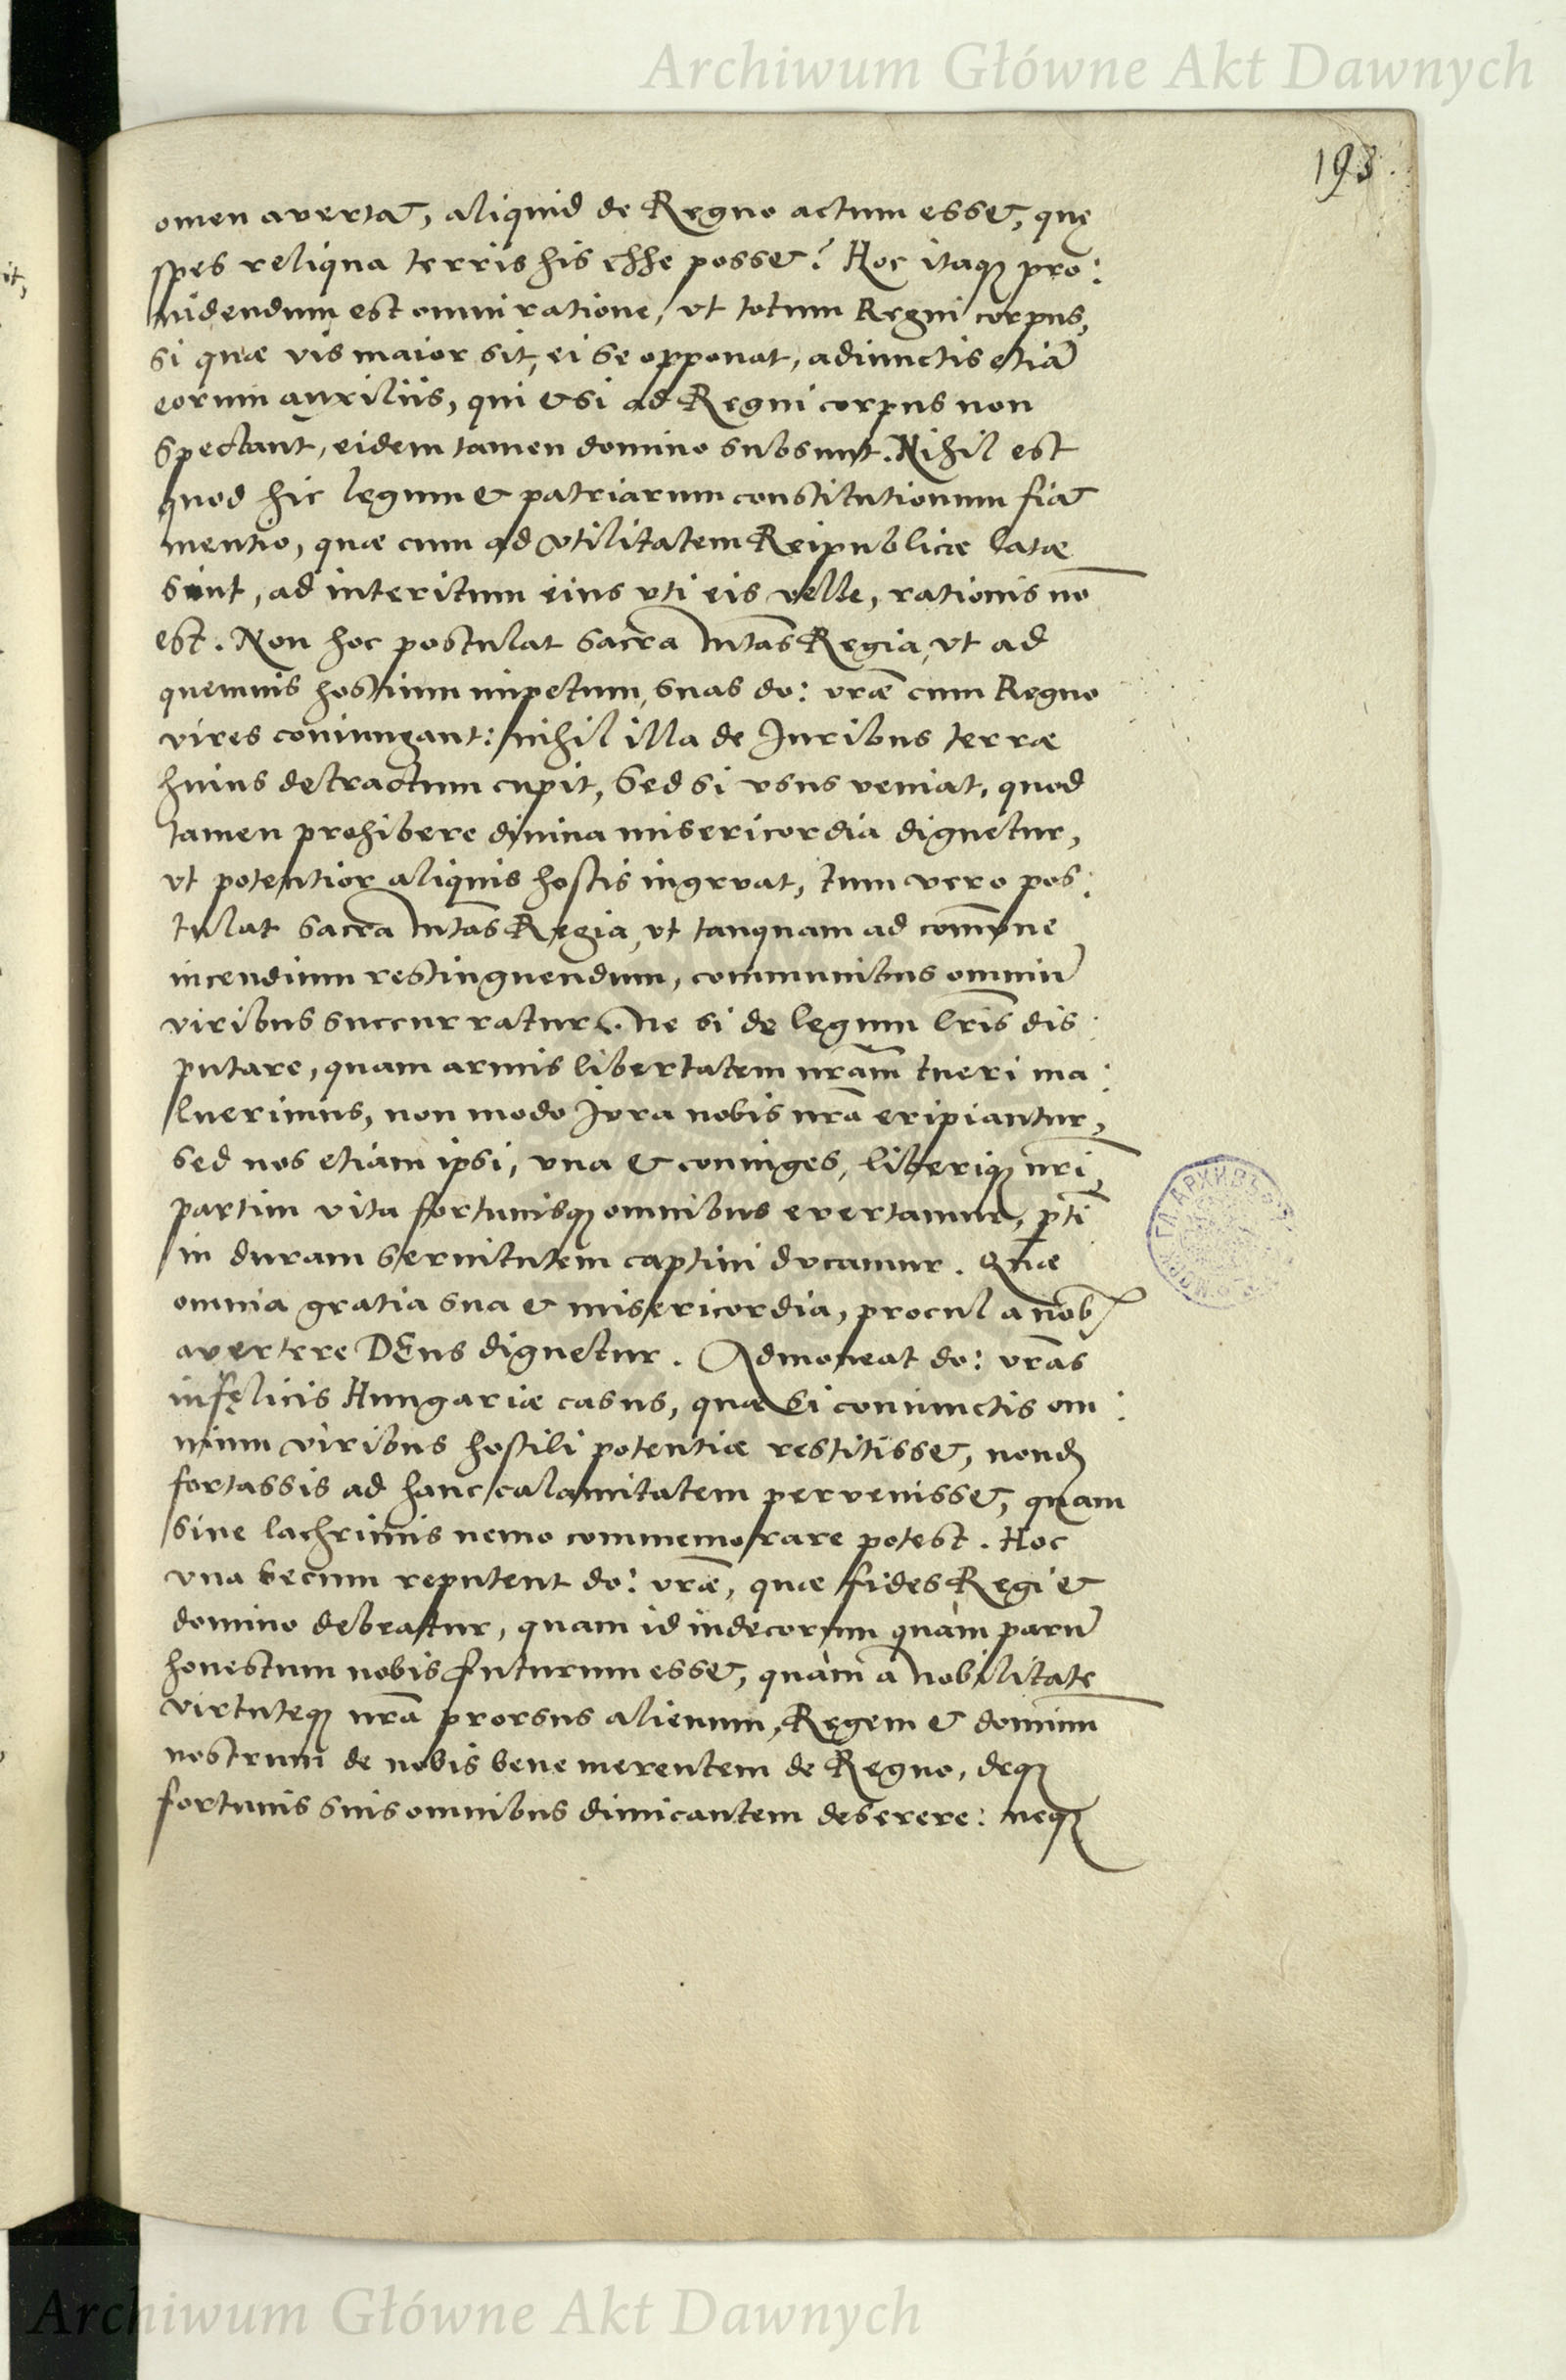 Archiwum Główne Akt Dawnych
193.
omen avertat, aliquid de Regno actum esset, quę
spes reliqua terris his esse posset? Hoc itaq; pro:
uidendum est omni ratione, vt totum Regni corpus,
si quæ vis maior sit, ei se opponat, adiunctis etiā
eorum auxiliis, qui etsi ad Regni corpus non
spectant, eidem tamen domino subsunt. Nihil est
quod hic legum et patriarum constitutionum fiat
mentio, quæ cum ad vtilitatem Reipublicæ latæ
sint, ad interitum eius vti eis velle, rationis nō
est. Non hoc postulat sacra Mtās Regia, vt ad
quemuis hostium impetum, suas do: vrāe cum Regno
vires coniungant: nihil illa de Iuribus terræ
huius detractum cupit, Sed si vsus veniat, quod
tamen prohibere diuina misericordia dignetur,
vt potentior aliquis hostis ingruat, tum vero pos:
tulat sacra Mtās Regia, vt tanquam ad com̄une
incendium restinguendum, communibus omniū
viribus succurratur. Ne si de legum lrīs dis:
putare, quam armis libertatem nrām tueri ma:
luerimus, non modo Iura nobis nrā eripiantur,
sed nos etiam ipsi, vna et coniuges, liberiq; nrī,
partim vita fortunisq; omnibus evertamur, ptī
in duram seruitutem captiui ducamur. Quæ
omnia gratia sua et misericordia, procul a nob
avertere DEus dignetur. Admoneat do: vrās
infęlicis Hungariæ casus, quæ si coniunctis om:
nium viribus hostili potentiæ restitisset, nond
fortassis ad hanc calamitatem pervenisset, quam
sine lachrimis nemo commemorare potest. Hoc
vna secum reputent do: vrāe, quæ fides Regi et
domino debeatur, quam id indecorum quàm parū
honestum nobis futurum esset, quàm a nobilitate
virtuteq; nrā prorsus alienum, Regem et dominū
nostrum de nobis bene merentem de Regno, deq;
fortunis suis omnibus dimicantem deserere: neq;
Archiwum Główne Akt Dawnych